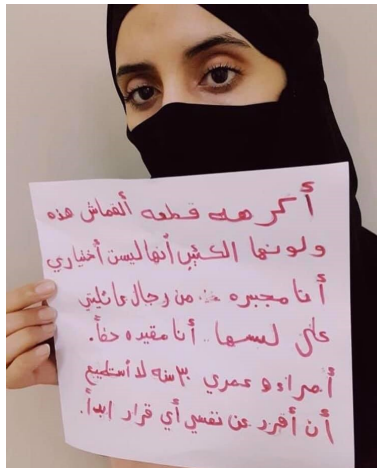 أكرهه قطعه ألقماش هذه
ولونها الكئيب أنها ليسن أختياري
أنا مجبره من رجال عائليتي
على لبسها أنا مقيده حقاً.
أمراء و عمري ٣٠ سنه لا أستطيع
أن أقرر عن نفسي أي قرار ابداً.